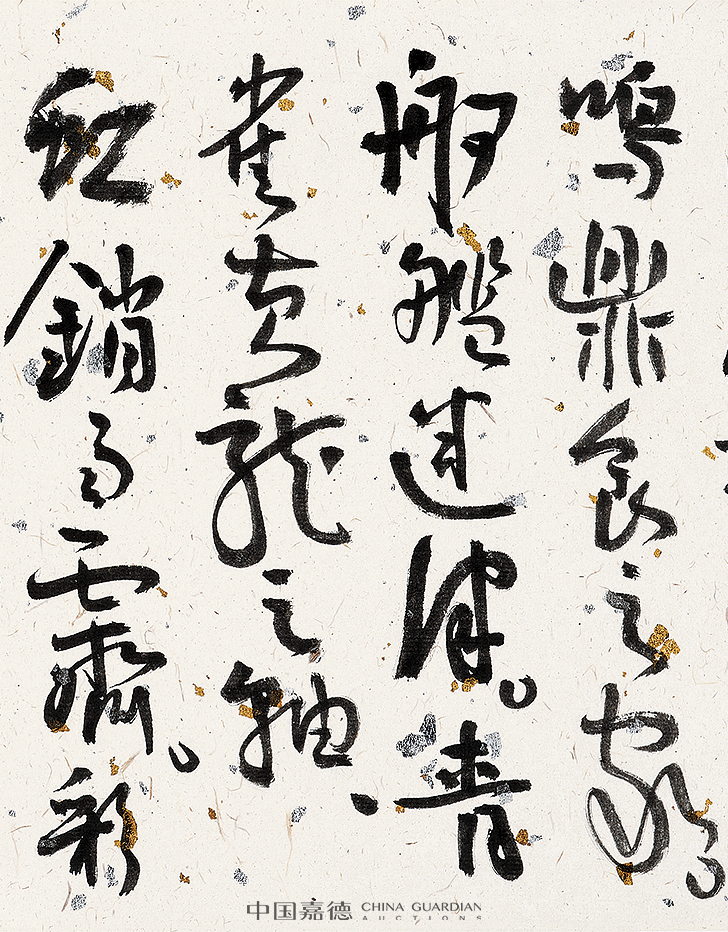 鳴鼎食之家。
舸艦迷津。青
雀黄龍之軸、
虹銷雨霽。彩
中国嘉德 CHINA GUARDIAN
AUCTIONS